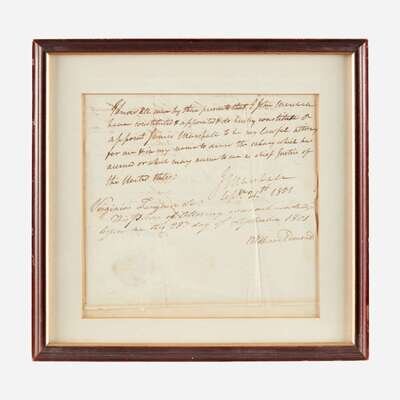 Know all men by these presents that I John Marshall
have constituted & appointed & do hereby constitute &
appoint James Marshall to be my lawful attorney
for me & in my name to receive the salary which has
accrued or which may accrue to me as chief Justice of
the United States.
J Marshall
Sept. 24th 1801
Virginia
This power of attorney was acknowledged
before me this day of September 1801
William